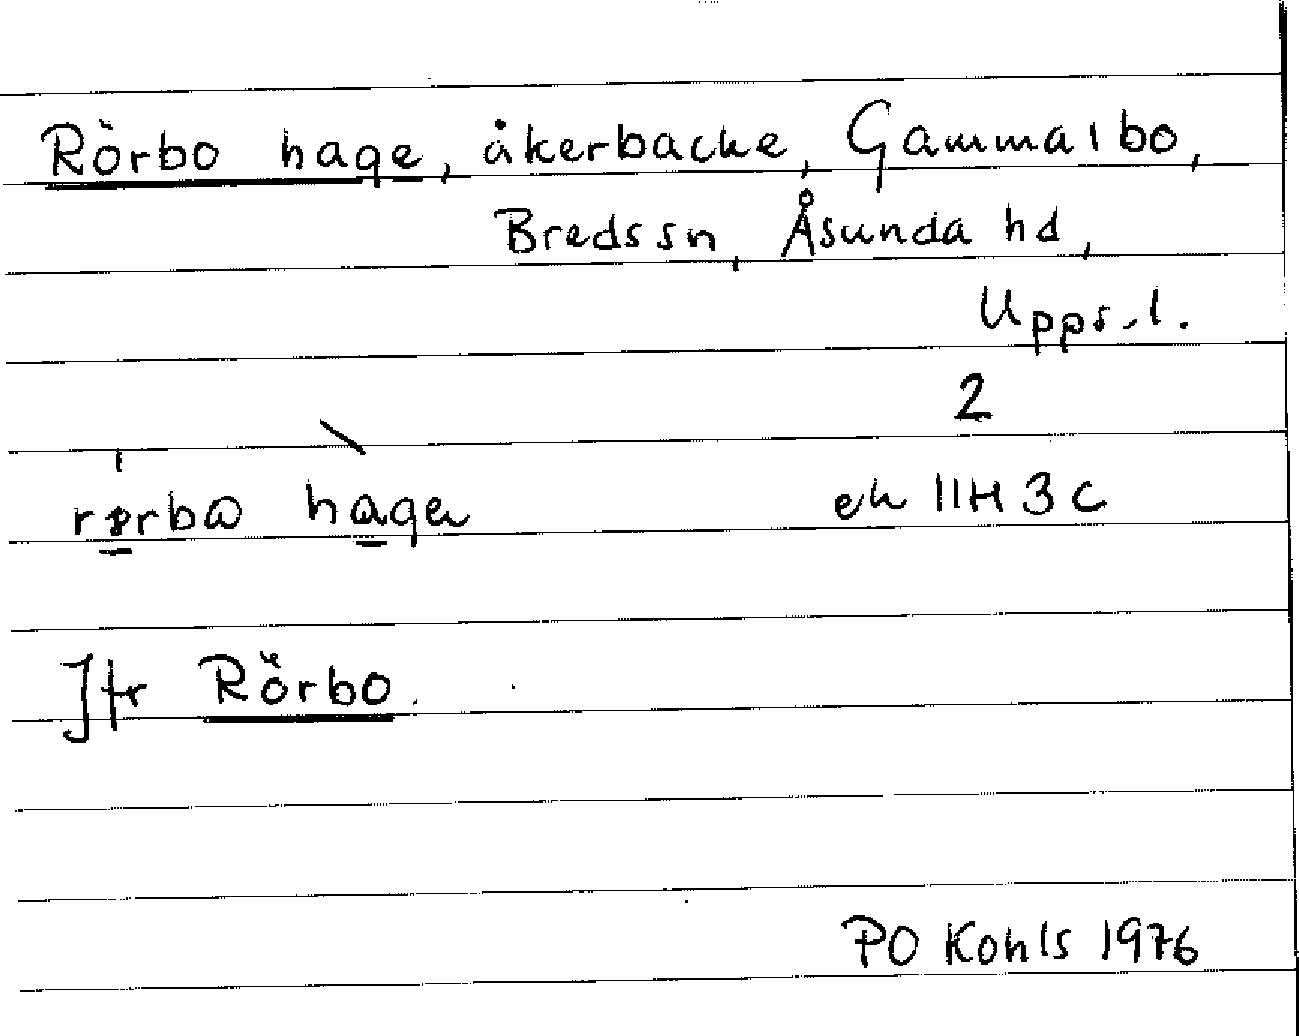 Rörbo hage, åkerbacke, Gammalbo,
Bredssn, Åsunda hd,
Upps.l.
2
ek 11H 3c
Jfr Rörbo.
PO Kohls 1976